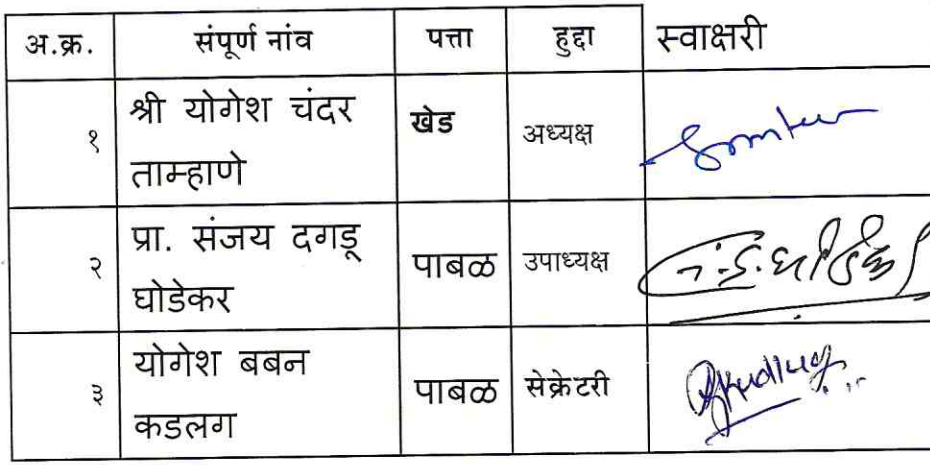 अ.क्र. संपूर्ण नांव पत्ता हुद्दा स्वाक्षरी
१ श्री योगेश चंदर ताम्हाणे खेड अध्यक्ष
२ प्रा. संजय दगडू घोडेकर पाबळ उपाध्यक्ष
३ योगेश बबन कडलग पाबळ सेक्रेटरी